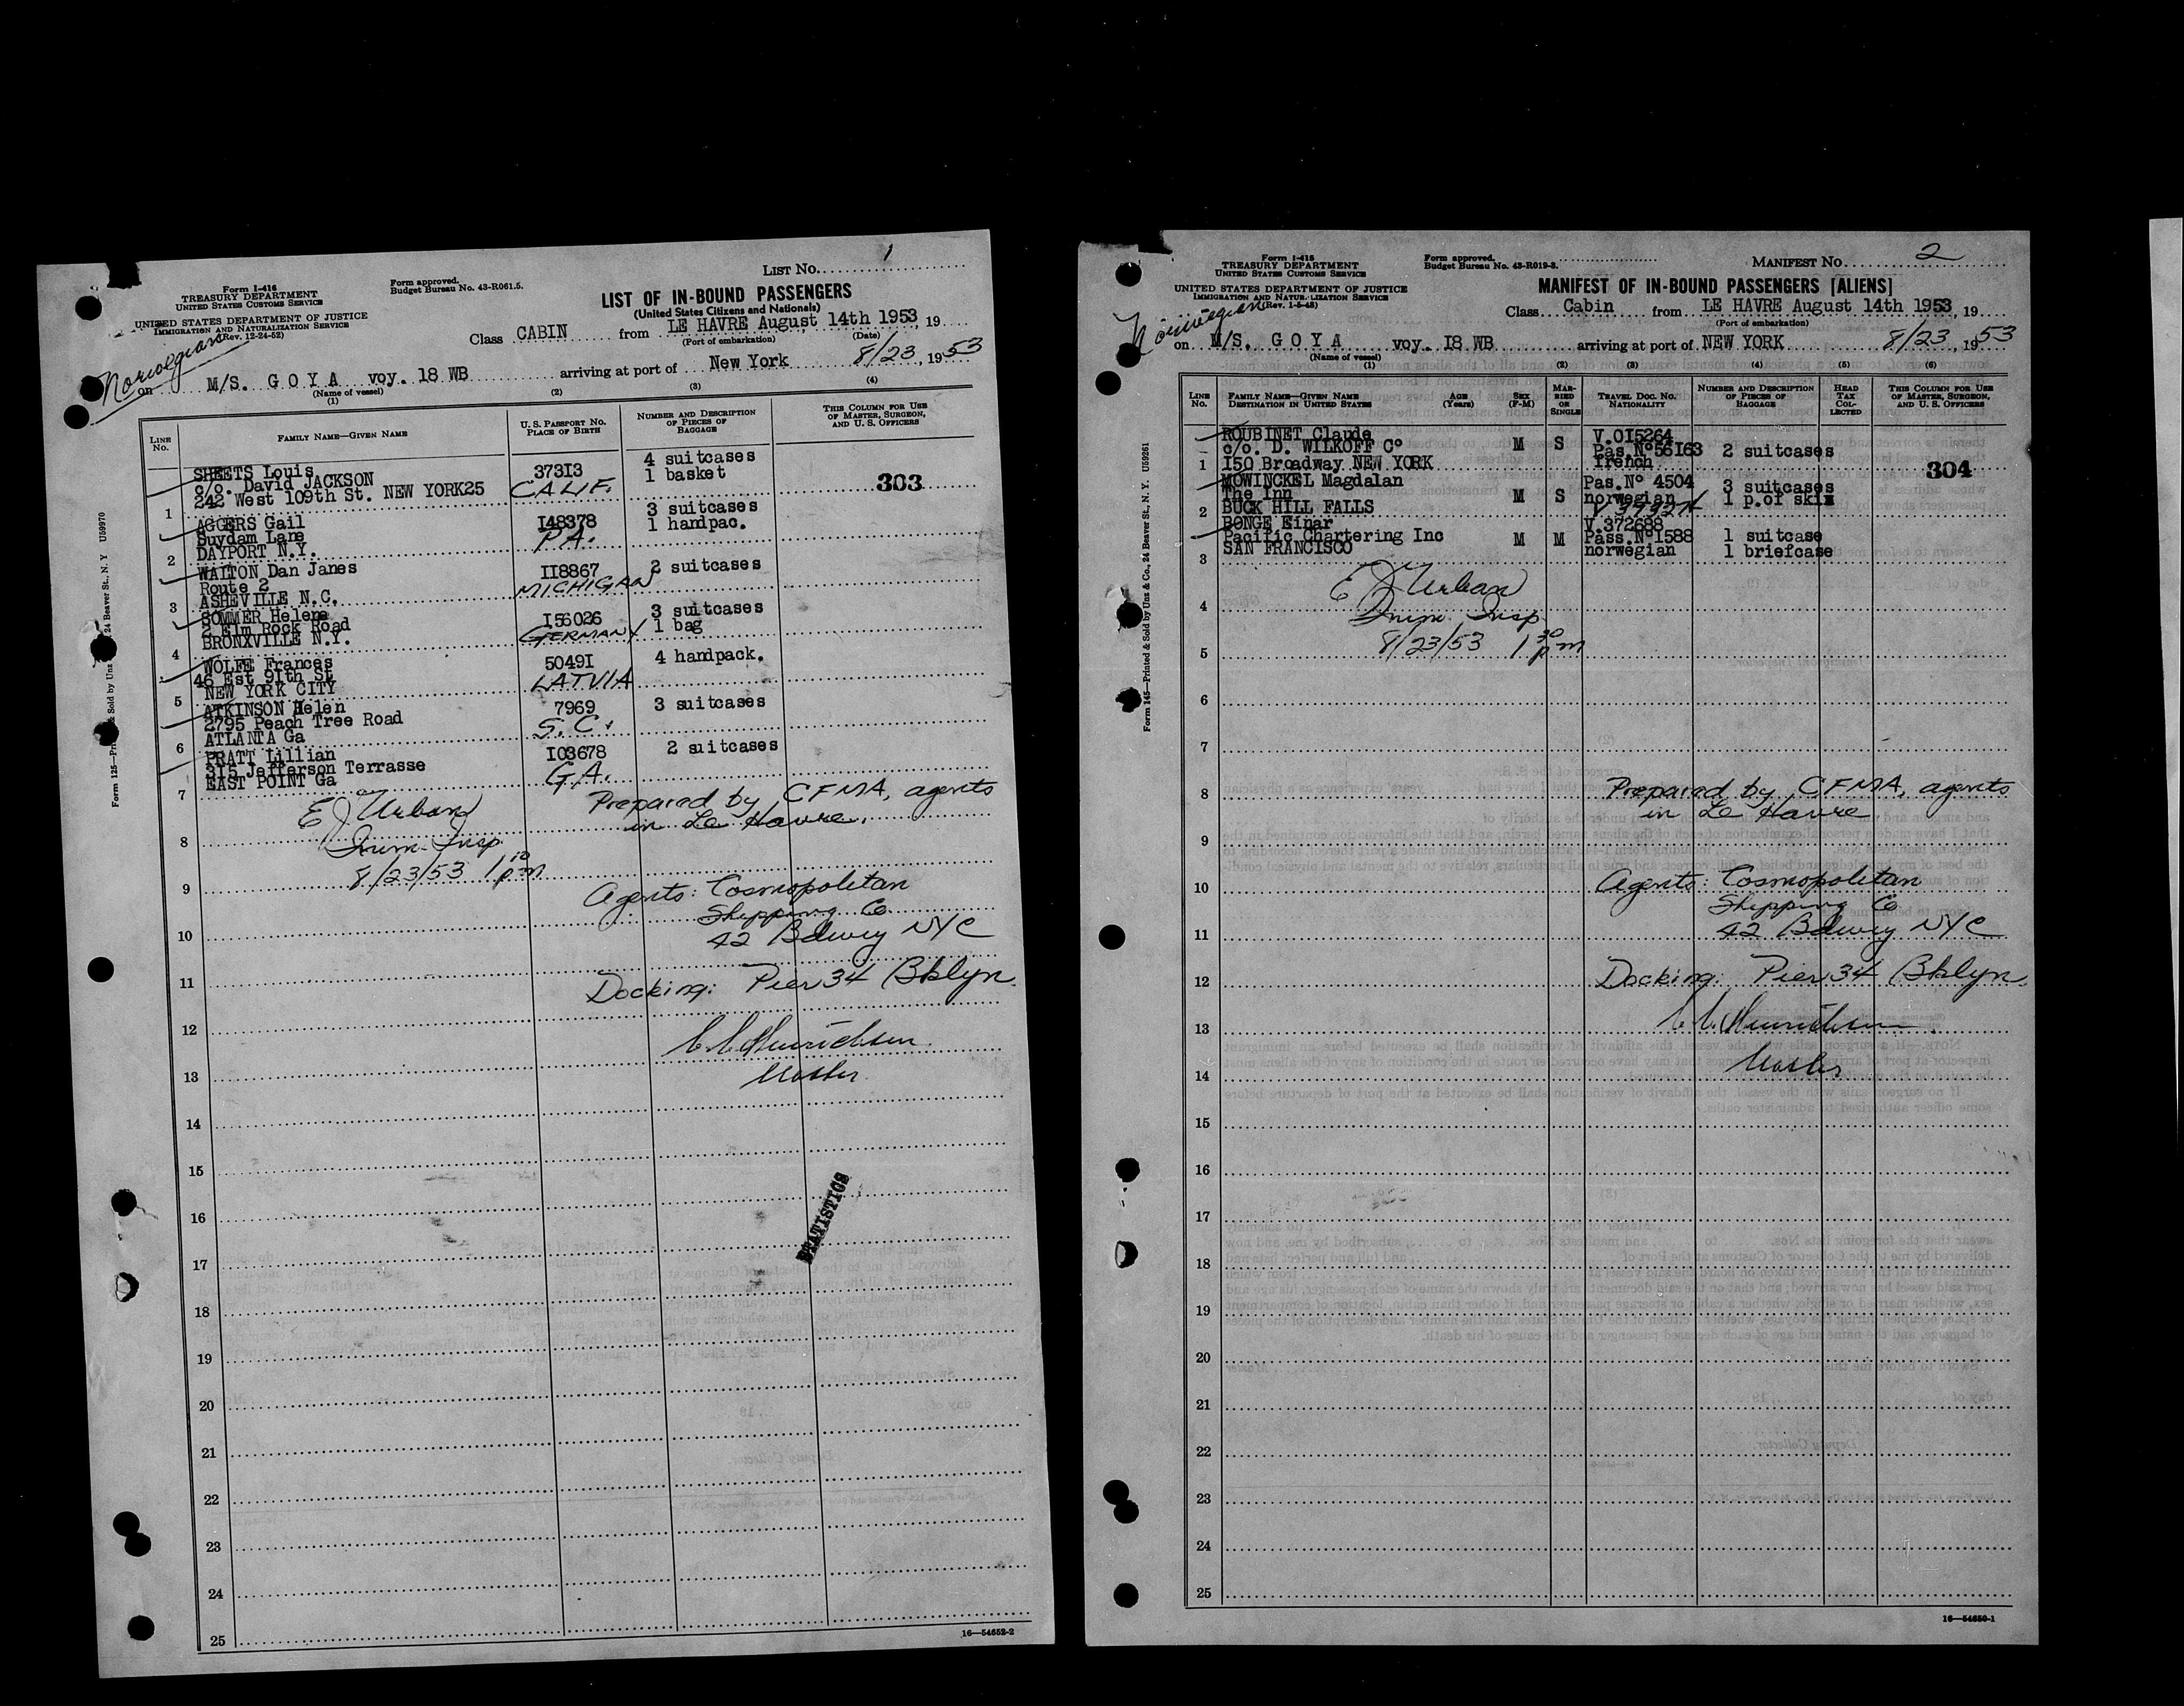 LIST No. 1
Form I-416
TREASURY DEPARTMENT
UNITED STATES CUSTOMS SERVICE
Form approved.
Budget Bureau No. 43-R061.5.
UNITED STATES DEPARTMENT OF JUSTICE
IMMIGRATION AND NATURALIZATION SERVICE
(Rev. 12-24-52)
LIST OF IN-BOUND PASSENGERS
(United States Citizens and Nationals)
Class CABIN from LE HAVRE August 14th 1953, 19
(Port of embarkation) (Date)
Norwegian
on M/S. G O Y A voy. 18 WB arriving at port of New York 8/23, 1953
(Name of vessel)
(1) (2) (3) (4)
LINE No.
FAMILY NAME—GIVEN NAME
U. S. PASSPORT NO.
PLACE OF BIRTH
NUMBER AND DESCRIPTION OF PIECES OF BAGGAGE
THIS COLUMN FOR USE OF MASTER, SURGEON, AND U. S. OFFICERS
SHEETS Louis 37313 4 suitcases
c/o. David JACKSON CALIF. 1 basket 303
1 242 West 109th St. NEW YORK25
AGGERS Gail I48378 3 suitcases
Suydam Lane PA. 1 handpac.
2 DAYPORT N.Y.
WALTON Dan Janes II8867 2 suitcases
Route 2 MICHIGAN
3 ASHEVILLE N.C.
SOMMER Helene I56026 3 suitcases
2 Elm Rock Road GERMANY 1 bag
4 BRONXVILLE N.Y.
WOLFE Frances 5049I 4 handpack.
46 Est 91th St LATVIA
5 NEW YORK CITY
ATKINSON Helen 7969 3 suitcases
2795 Peach Tree Road S.C.
6 ATLANTA Ga
PRATT Lillian I03678 2 suitcases
315 Jefferson Terrasse GA.
7 EAST POINT Ga
E J Urban
Imm. Insp.
8/23/53 1 10 pm
Prepared by CFMA, agents
in Le Havre.
Agents: Cosmopolitan
Shipping Co.
42 Bdwy NYC
Docking: Pier 34 Bklyn.
Master
8
9
10
11
12
13
14
15
16
17
18
19
20
21
22
23
24
25
STATISTICS
16—54652-2
U59970
MANIFEST No. 2
Form I-415
TREASURY DEPARTMENT
UNITED STATES CUSTOMS SERVICE
Form approved.
Budget Bureau No. 43-R019-3.
UNITED STATES DEPARTMENT OF JUSTICE
IMMIGRATION AND NATURALIZATION SERVICE
(Rev. 1-5-48)
MANIFEST OF IN-BOUND PASSENGERS [ALIENS]
Class Cabin from LE HAVRE August 14th 1953, 19
(Port of embarkation)
Norwegian
on M/S. G O Y A voy. I8 WB arriving at port of NEW YORK 8/23, 1953
(Name of vessel)
(1) (2) (3) (4) (5) (6)
LINE No.
FAMILY NAME—GIVEN NAME
DESTINATION IN UNITED STATES
AGE (Years)
SEX (F-M)
MARRIED OR SINGLE
TRAVEL DOC. NO.
NATIONALITY
NUMBER AND DESCRIPTION OF PIECES OF BAGGAGE
HEAD TAX COLLECTED
THIS COLUMN FOR USE OF MASTER, SURGEON, AND U. S. OFFICERS
ROUBINET Claude M S V.0I5264
c/o. D. WILKOFF C° Pas.N°56163 2 suitcases
1 I50 Broadway NEW YORK french 304
MOWINCKEL Magdalan Pas.N° 4504 3 suitcases
The Inn M S norwegian 1 p.of skis
2 BUCK HILL FALLS
BONGE Einar V.372688
Pacific Chartering Inc M M Pass.N°I588 1 suitcase
3 SAN FRANCISCO norwegian 1 briefcase
E J Urban
Imm. Insp.
8/23/53 1 30 pm
Prepared by CFMA, agents
in Le Havre.
Agents: Cosmopolitan
Shipping Co
42 Bdwy NYC
Docking: Pier 34 Bklyn.
Master
4
5
6
7
8
9
10
11
12
13
14
15
16
17
18
19
20
21
22
23
24
25
16—54650-1
Form 145—Printed & Sold by Unz & Co., 24 Beaver St., N. Y. U59261